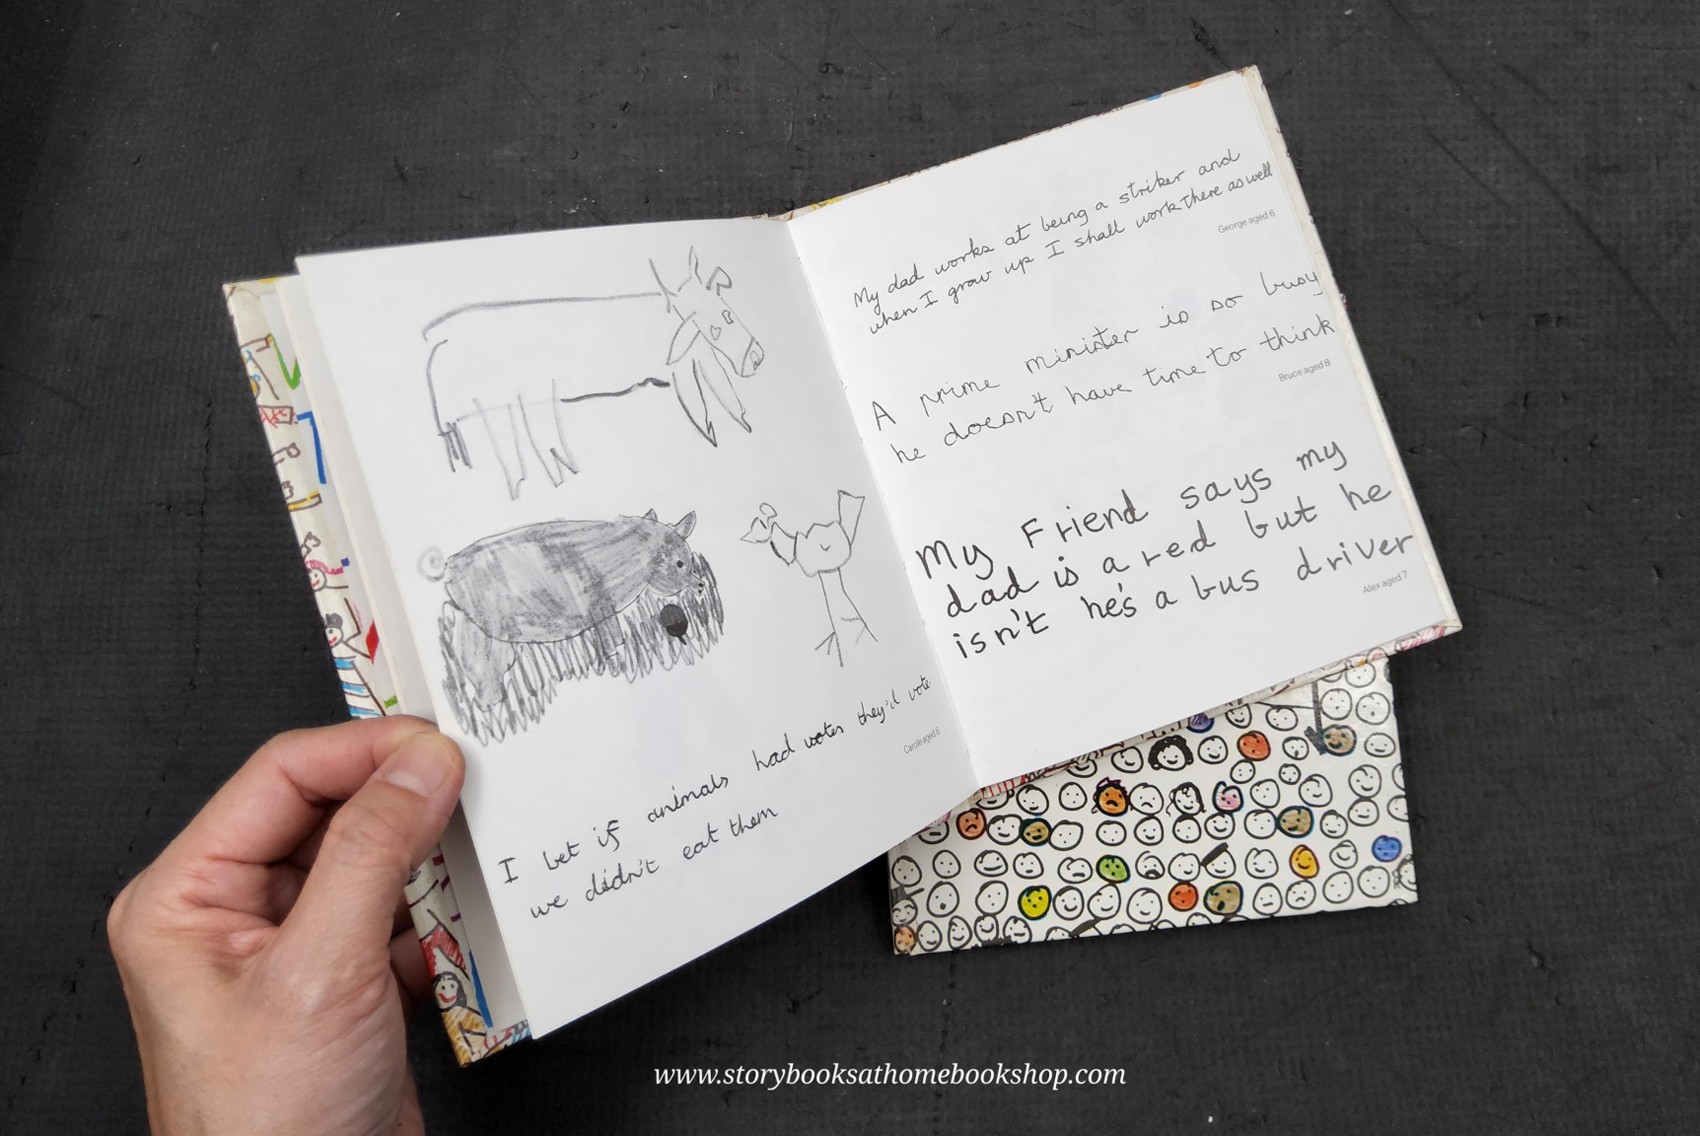 I bet if animals had votes they'd vote
we didn't eat them
Carole aged 6
My dad works at being a striker and
when I grow up I shall work there as well
George aged 6
A prime minister is so busy
he doesn't have time to think
Bruce aged 8
My Friend says my
dad is a red but he
isn't he's a bus driver
Alex aged 7
www.storybooksathomebookshop.com